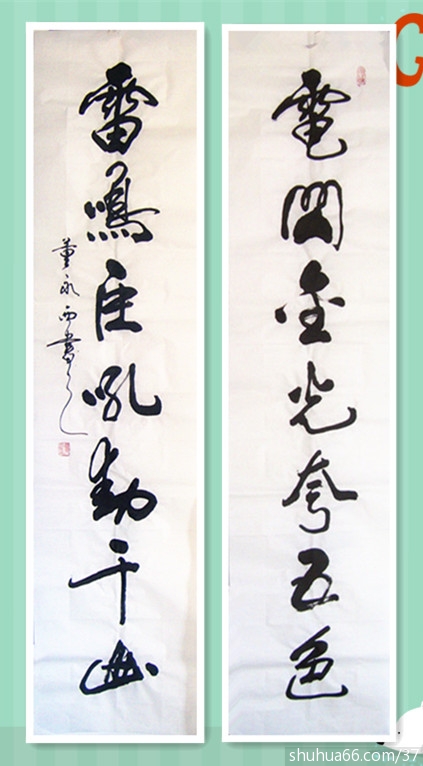 電閃金光夸五色
雷鳴巨吼動千幽
董永西書
shuhua66.com/37
G